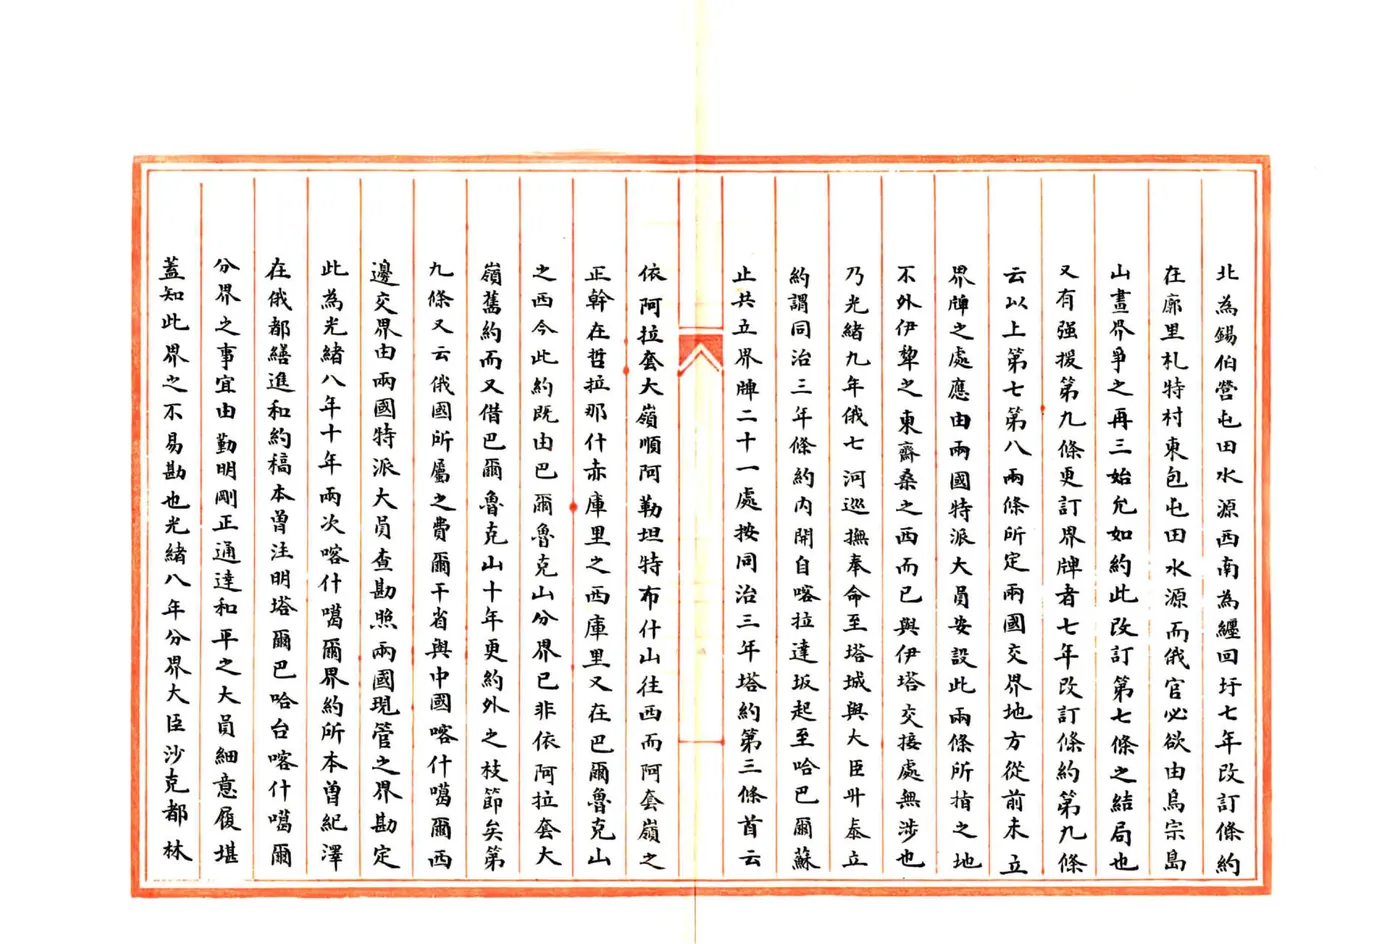 北為錫伯營屯田水源西南為纏回圩七年改訂條約
在廓里札特村東包屯田水源而俄官必欲由鳥宗島
山畫界爭之再三始允如約此改訂第七條之結局也
又有强援第九條更訂界牌者七年改訂條約第九條
云以上第七第八兩條所定兩國交界地方從前未立
界牌之處應由兩國特派大員安設此兩條所指之地
不外伊犂之東齋桑之西而已與伊塔交接處無涉也
乃光緒九年俄七河巡撫奉命至塔城與大臣升泰立
約謂同治三年條約內開自喀拉達坂起至哈巴爾蘇
止共立界牌二十一處按同治三年塔約第三條首云
依阿拉套大嶺順阿勒坦特布什山往西而阿套嶺之
正幹在哲拉那什赤庫里之西庫里又在巴爾魯克山
之西今此約既由巴爾魯克山分界已非依阿拉套大
嶺舊約而又借巴爾魯克山十年更約外之枝節矣第
九條又云俄國所屬之費爾干省與中國喀什噶爾西
邊交界由兩國特派大員查勘照兩國現管之界勘定
此為光緒八年十年兩次喀什噶爾界約所本曾紀澤
在俄都繕進和約稿本曾注明塔爾巴哈台喀什噶爾
分界之事宜由勤明剛正通達和平之大員細意履堪
蓋知此界之不易勘也光緒八年分界大臣沙克都林